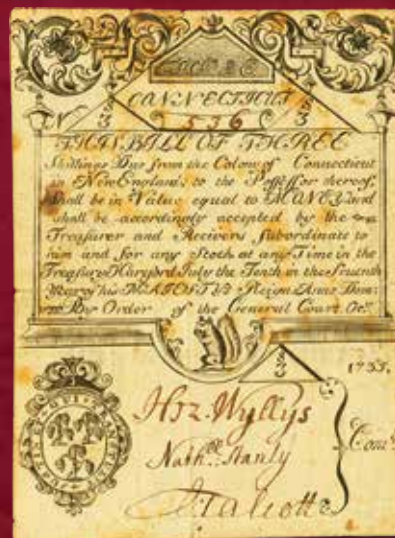 CONNECTICUT
No 536
S/3
S/3
THIS BILL OF THREE
Shillings Due from the Colony of Connecticut
in New England, to the Possessor thereof,
Shall be in Value equal to MONEY and
shall be accordingly accepted by the
Treasurer and Recivers Subordinate to
him and for any Stock at any Time in the
Treasury Hartford July the Tenth in the Seventh
Year of his MAJESTYS Reign Anno Dom:
By Order of the General Court &c.
S/3
1733.
Hez. Wyllys
Nathll. Stanly
J Talcott
Comtt